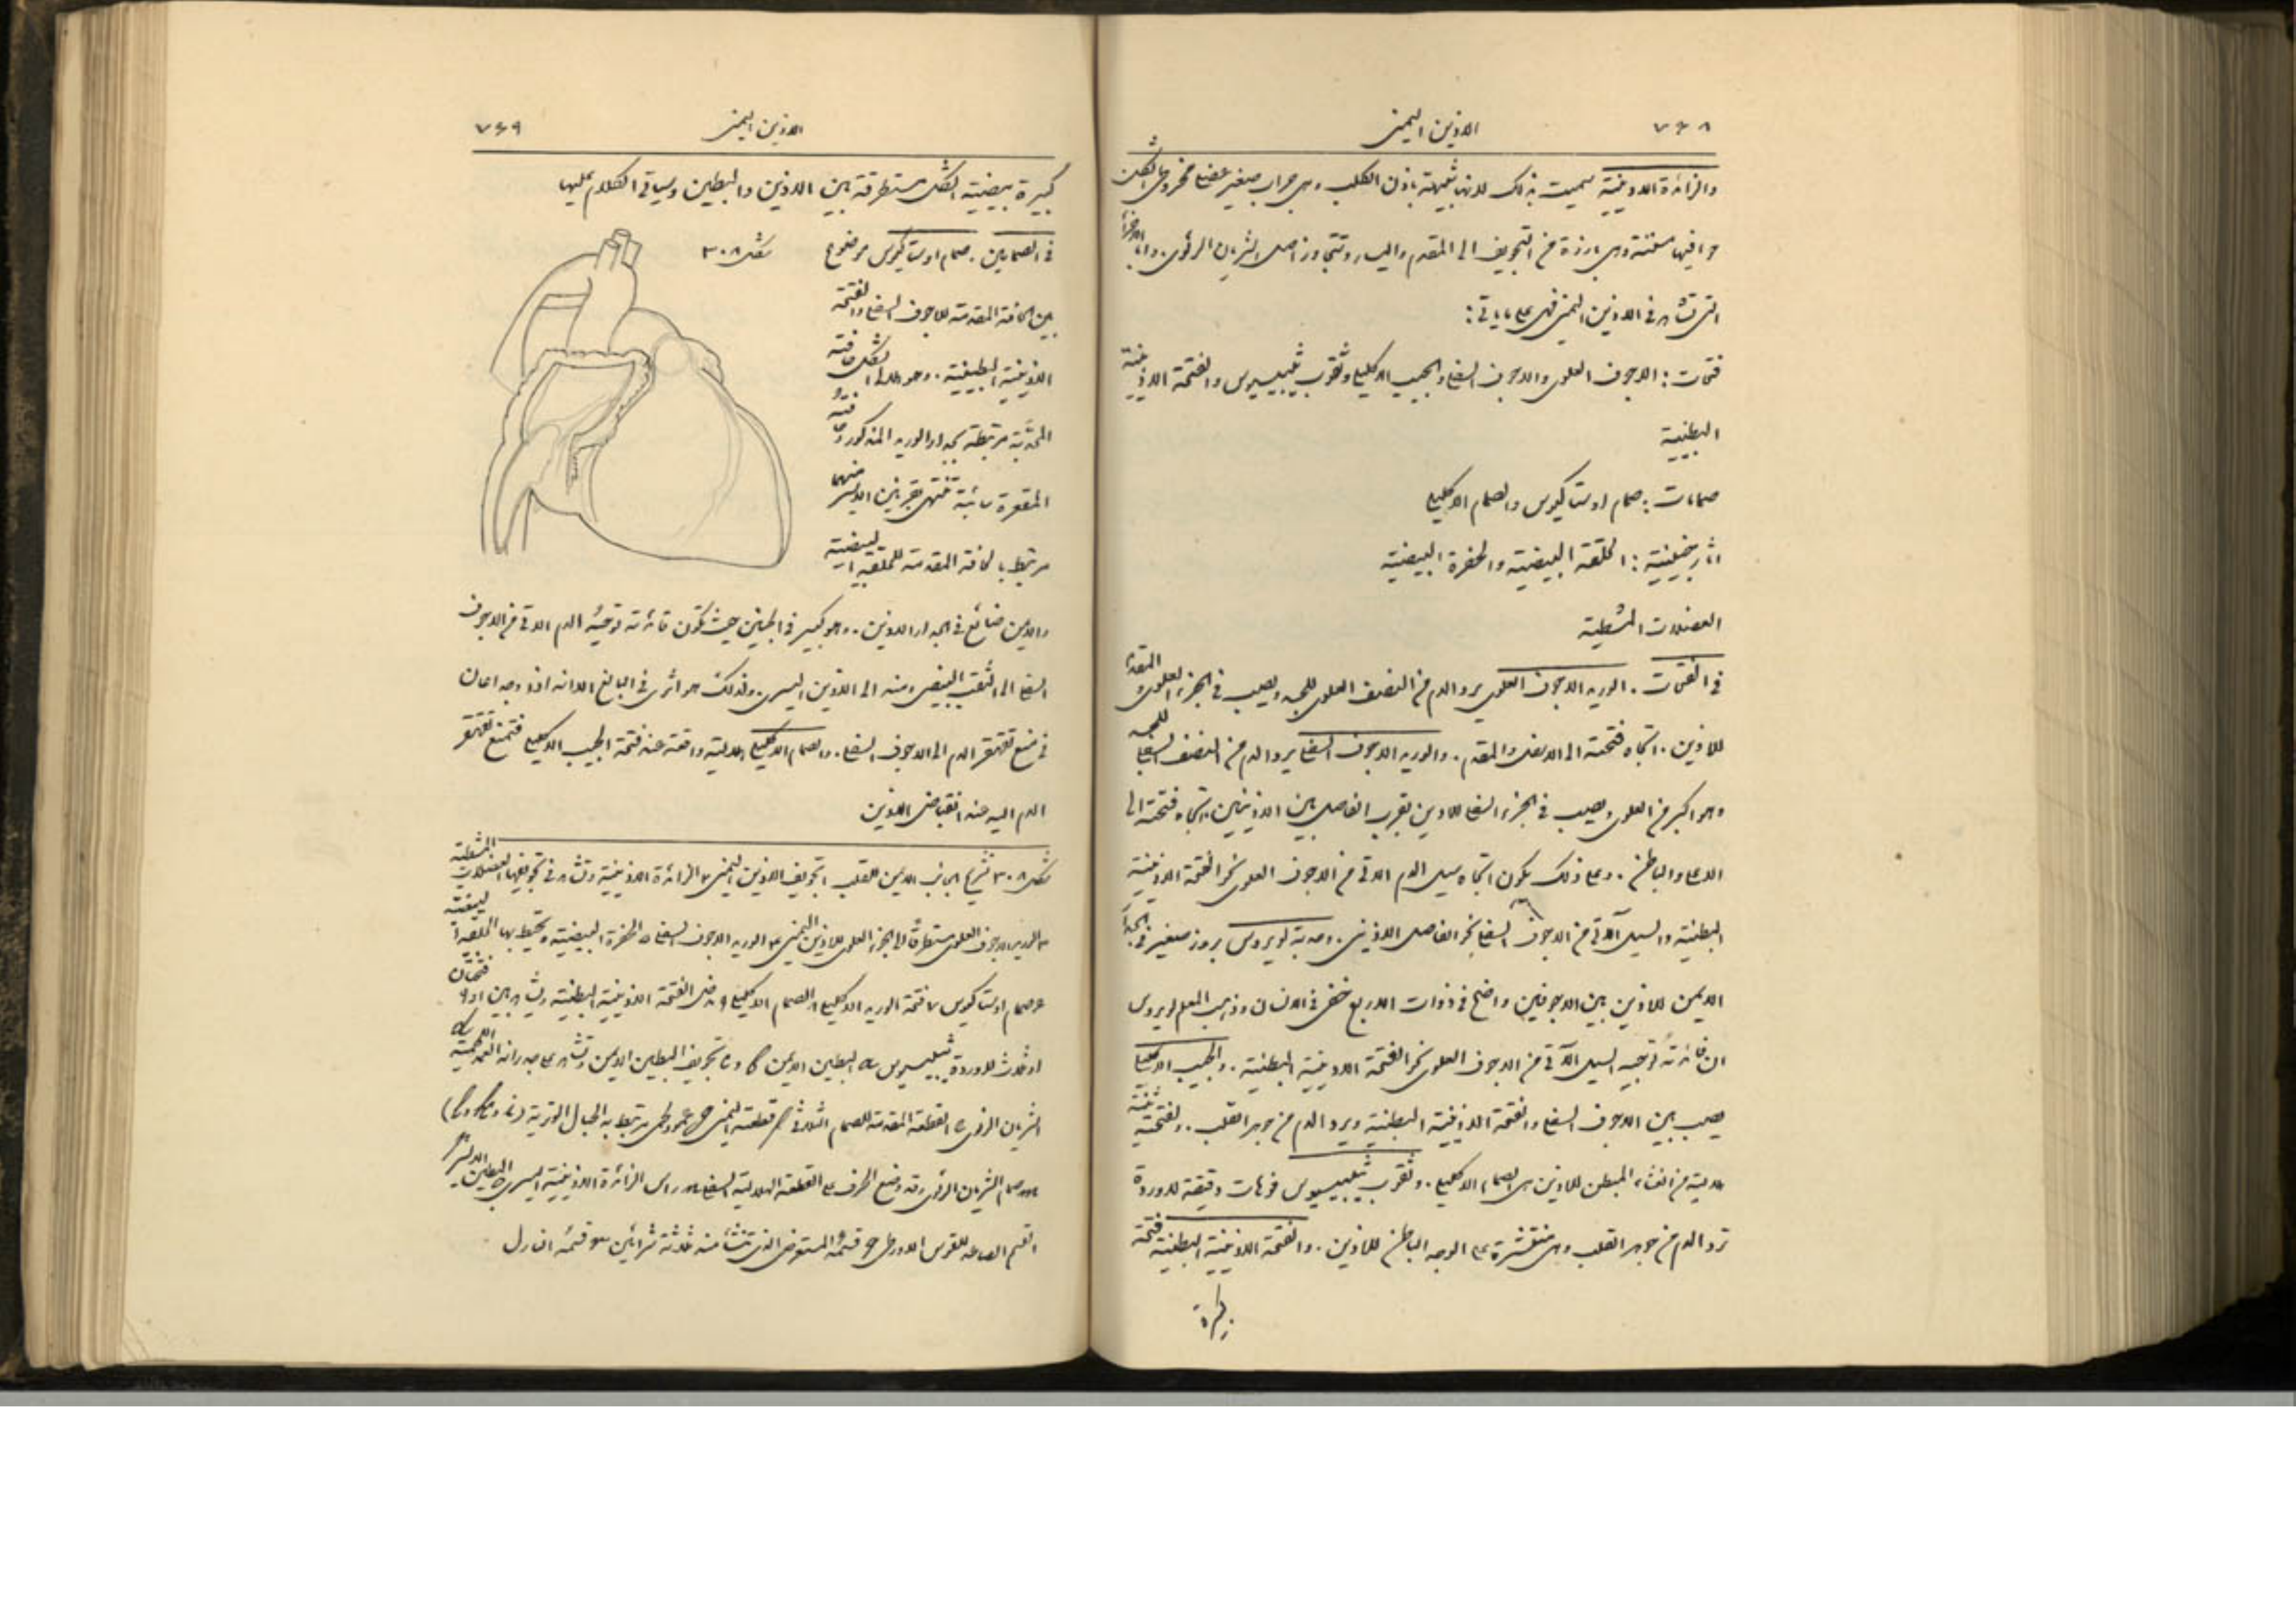 ٧٤٨
الاذين اليمنى
والزائدة الاذينية سميت بذلك لانها شبيهة باذن الكلب وهي جراب صغير عضلي مخروطي الشكل
حوافيها مسننة وهي بارزة من التجويف الى المقدم واليسار وتتجاوز اصل الشريان الرئوي. واما الاجزاء
التي تشاهد في الاذين اليمنى فهي على ما ياتي:
فتحات: الاجوف العلوي والاجوف السفلي والجيب الاكليلي وثقوب ثيبيسيوس والفتحة الاذينية
البطينية
صمامات: صمام اوستاكيوس والصمام الاكليلي
اثار جنينية: الحلقة البيضية والحفرة البيضية
العضلات المشطية
في الفتحات. الوريد الاجوف العلوي يرد الدم من النصف العلوي للجسد ويصب في الجزء العلوي المقدم
للاذين. اتجاه فتحته الى الاسفل والمقدم. والوريد الاجوف السفلي يرد الدم من النصف السفلي للجسد
وهو اكبر من العلوي ويصب في الجزء السفلي للاذين بقرب الفاصل بين الاذينين. اتجاه فتحته الى
الاعلى والباطن. وعلى ذلك يكون اتجاه سيل الدم الاتي من الاجوف العلوي نحو الفتحة الاذينية
البطينية والسيل الآتي من الاجوف السفلي نحو الفاصل الاذيني. وحدبة لويروس بروز صغير في الجدار
الايمن للاذين بين الاجوفين واضح في ذوات الاربع خفي في الانسان وذهب المعلم لويروس
ان فائدته توجيه السيل الآتي من الاجوف العلوي نحو الفتحة الاذينية البطينية. والجيب الاكليلي
يصب بين الاجوف السفلي والفتحة الاذينية البطينية ويرد الدم من جوهر القلب. ولفتحته ثنية
هلالية من الغشاء المبطن للاذين هي الصمام الاكليلي. وثقوب ثيبيسيوس فوهات دقيقة لاوردة
ترد الدم من جوهر القلب وهي منتشرة على الوجه الباطن للاذين. والفتحة الاذينية البطينية فتحة
كبيرة
٧٤٩
الاذين اليمنى
كبيرة بيضية الشكل مستطرقة بين الاذين والبطين وسياتي الكلام عليها
في الصمامين. صمام اوستاكيوس موضوع
شكل ٣٠٨
بين الحافة المقدمة للاجوف السفلي والفتحة
الاذينية البطينية. وهو هلالي الشكل حافته
المحدبة مرتبطة بجدار الوريد المذكور وحافته
المقعرة سائبة تنتهي بقرنين الايسر منهما
مرتبط بالحافة المقدمة للحلقة البيضية
والايمن ضائع في جدار الاذين. وهو كبير في الجنين حيث تكون فائدته توجيه الدم الاتي من الاجوف
السفلي الى الثقب البيضي ومنه الى الاذين اليسرى. ولذلك هو اثري في البالغ الا انه اذا وجد اعان
في منع تقهقر الدم الى الاجوف السفلي. والصمام الاكليلي هلالية واقعة عند فتحة الجيب الاكليلي فتمنع تقهقر
الدم اليه عند انقباض الاذين
شكل ٣٠٨ تشريح الجانب الايمن للقلب ١ تجويف الاذين اليمنى ٢ الزائدة الاذينية وتشاهد في تجويفها العضلات المشطية
٣ الوريد الاجوف العلوي مستطرقا الى الجزء العلوي للاذين اليمنى ٤ الوريد الاجوف السفلي ٥ الحفرة البيضية وتحيط بها الحلقة البيضية
٦ صمام اوستاكيوس ٧ فتحة الوريد الاكليلي ٨ الصمام الاكليلي ٩ الفتحة الاذينية البطينية ويشاهد بين ١ و ٩ فتحتان
او ثلاث للاوردة ثيبيسيوس a البطين الايمن b و c تجويف البطين الايمن وتشاهد على جدرانه الاعمدة اللحمية
الشريان الرئوي e القطعة المقدمة للصمام الثلاثي f قطعته اليمنى g عمود لحمي يرتبط به الحبال الوترية
صمام الشريان الرئوي وقد وضع الحرف على القطعة الهلالية السفلى راس الزائدة الاذينية اليسرى البطين الايسر
القسم الصاعد للقوس الاورطي قسمه المستعرض الذي تنشأ منه ثلاثة شرايين قسمه النازل